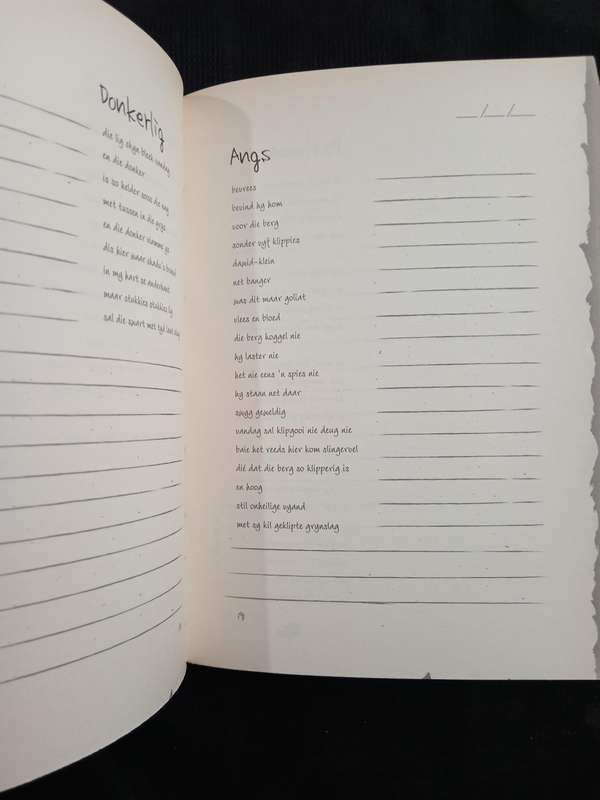 Donkerlig
die lig skyn bleek vandag
en die donker
is so helder soos die nag
met tussen in die grys
en die donker vlamme
dis hier waar skadu's
in my hart se
maar stukkies stukkies lig
sal die swart met tyd
__/__/__
Angs
bevrees
bevind hy hom
voor die berg
sonder vyf klippies
dawid-klein
net banger
was dit maar goliat
vlees en bloed
die berg koggel nie
hy laster nie
het nie eens 'n spies nie
hy staan net daar
swyg geweldig
vandag sal klipgooi nie deug nie
baie het reeds hier kom slingervel
dié dat die berg so klipperig is
en hoog
stil onheilige vyand
met sy kil geklipte grynslag